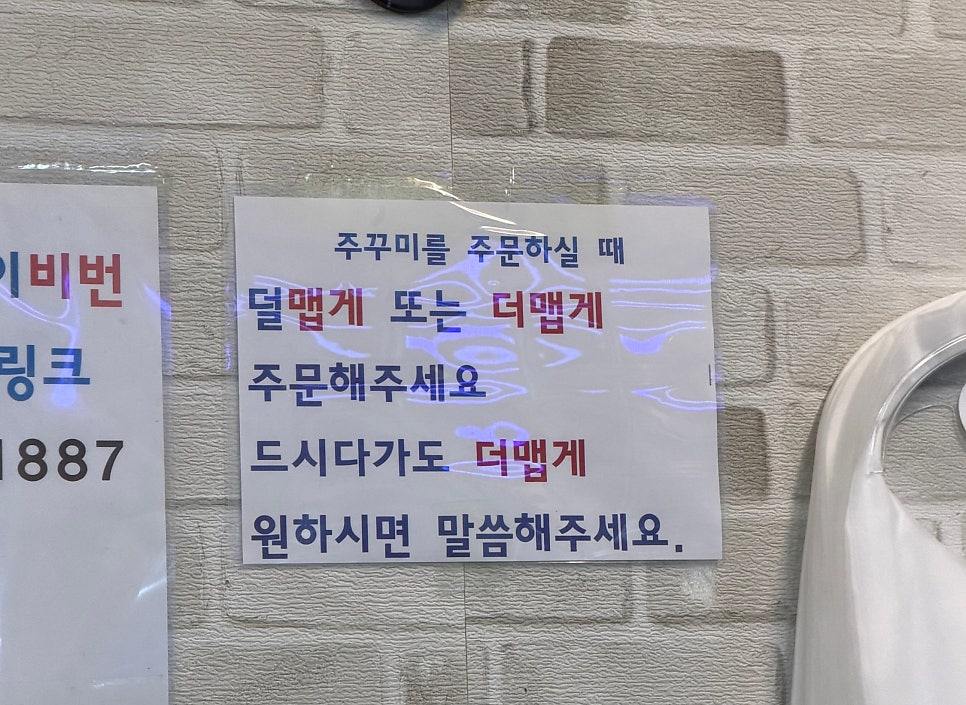 이비번
링크
1887
주꾸미를 주문하실 때
덜맵게 또는 더맵게
주문해주세요
드시다가도 더맵게
원하시면 말씀해주세요.